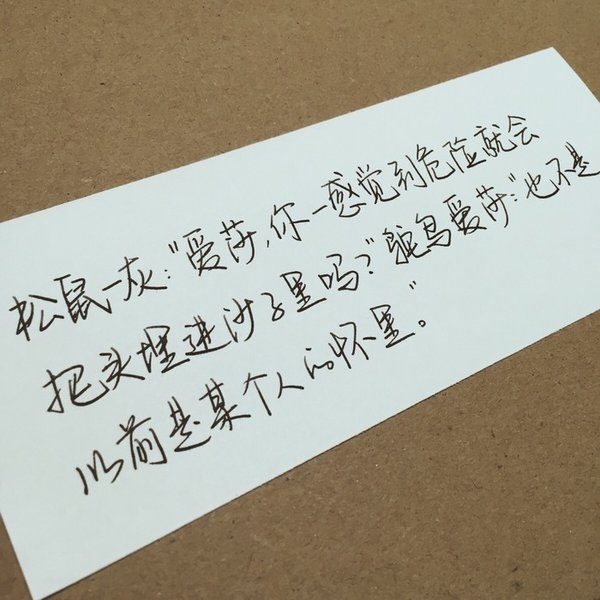 松鼠一灰："爱莎，你一感觉到危险就会
把头埋进沙子里吗？"鸵鸟爱莎："也不是
以前是某个人的怀里。"